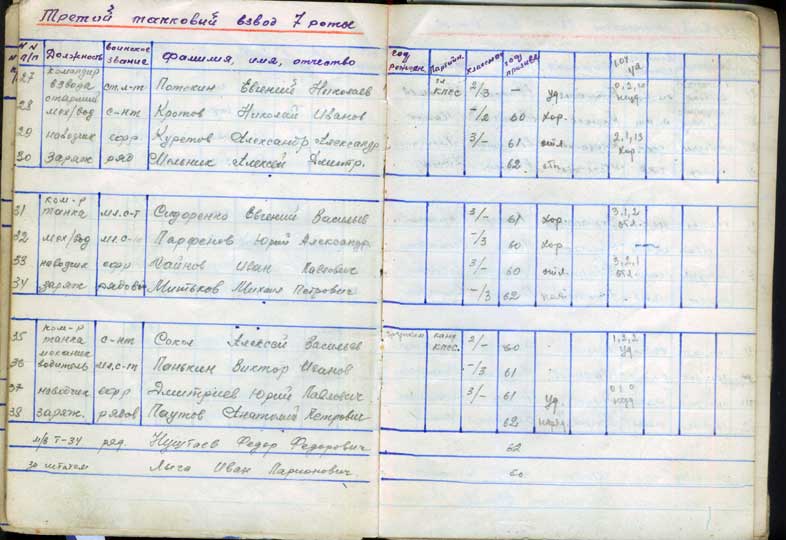 Третий танковый взвод 7 роты
N N п/п Должность воинское звание фамилия, имя, отчество год рожден. Партийн. Классност год призыва
27 командир взвода ст.л-т Потокин Евгений Николаев чл КПСС 2/3 - уд 0,2,0 неуд.
28 старший мех/вод с-нт Кротов Николай Иванов -/2 60 хор.
29 наводчик ефр Александр Александр 3/- 61 отл. 2,1,13 хор
30 Заряж ряд Мельник Алексей Дмитр. 62
31 ком-р танка мл.с-т Сидоренко Евгений Васильев 3/- 61 хор. 3,1,2 отл.
32 мех/вод мл.с-т Парфенов Юрий Александр -/3 60 хор.
33 наводчик ефр Иван Павлович 3/- 60 отл. 3,2,1 отл.
34 заряж рядовой Митьков Михаил Петрович -/3 62
35 ком-р танка с-нт Сокол Алексей Васильев канд КПСС. 2/- 60 1,2,2 уд
36 механик водитель мл.с-т Панькин Виктор Иванов -/3 61
37 наводчик ефр Дмитриев Юрий Павлович 3/- 61 уд. неуд
38 заряж. рядов Паутов Анатолий Петрович 62 неуд
м/в Т-34 ряд. Федор Федорович 62
за штатом Лыга Иван Ларионович 60